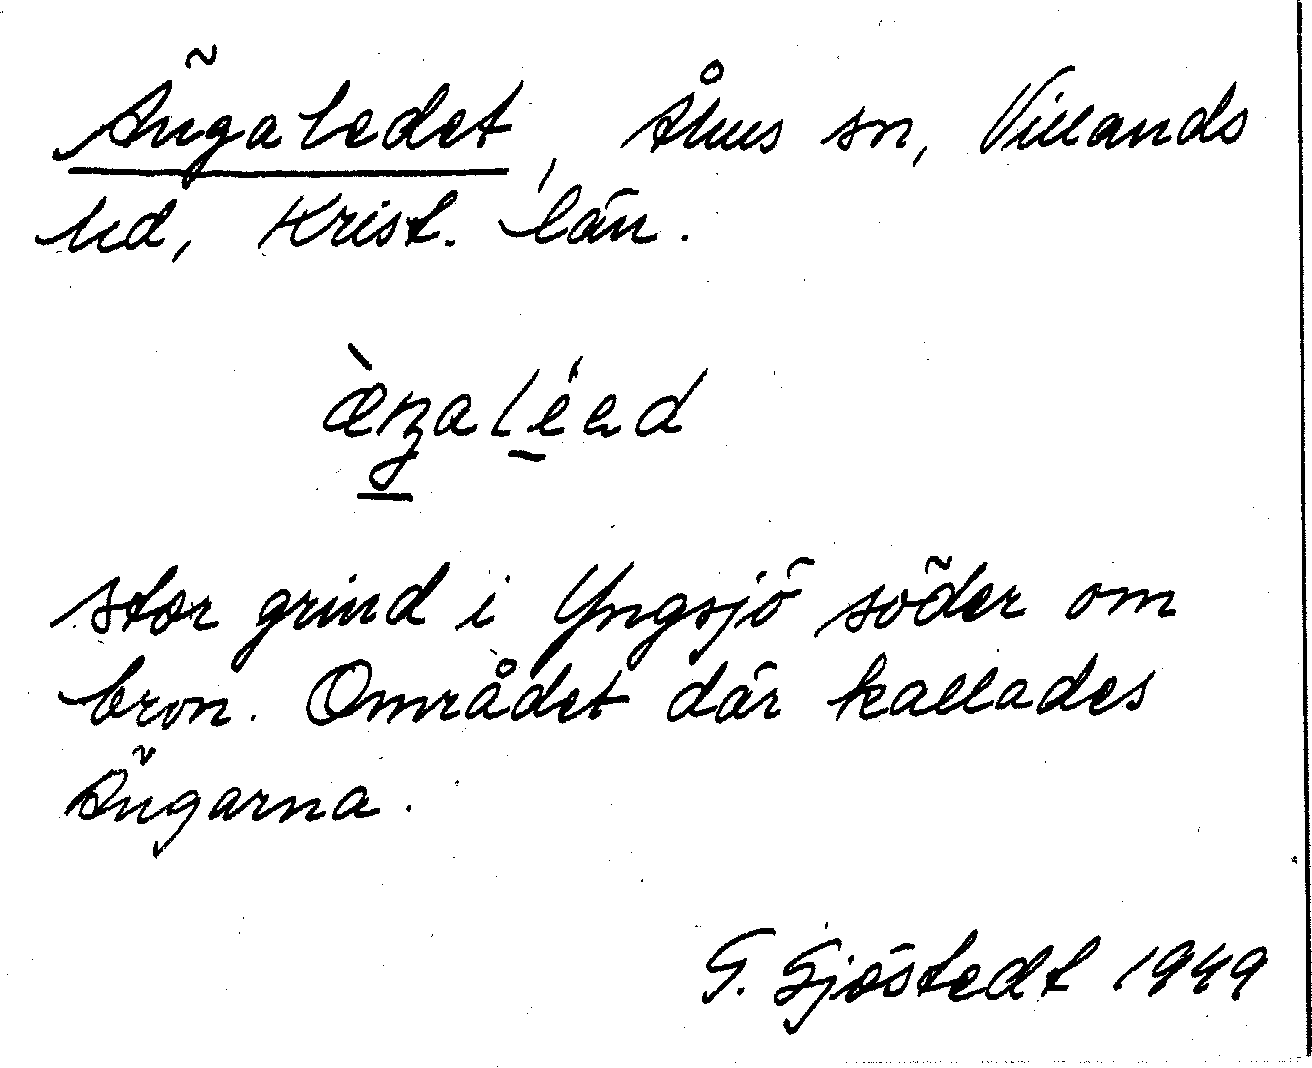 Ängaledet, Åhus sn, Villands
hd, Krist. län.
æ̀ŋaléed
stor grind i Yngsjö söder om
bron. Området där kallades
Ängarna.
G. Sjöstedt 1949